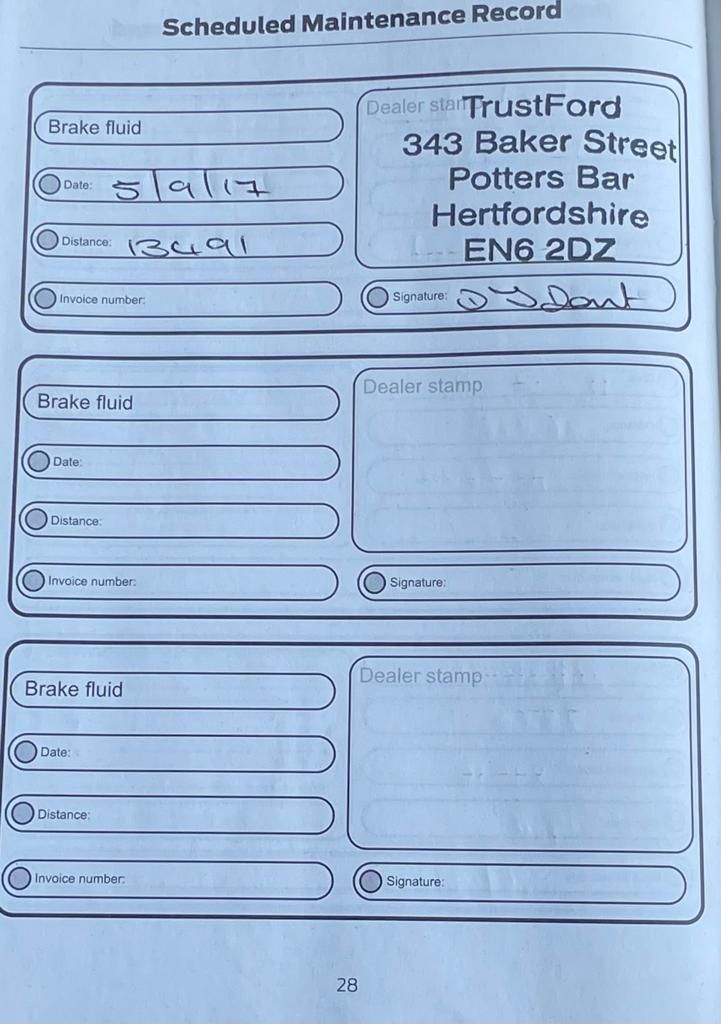 Scheduled Maintenance Record
Brake fluid
Date: 5/9/17
Distance: 13491
Invoice number:
Dealer stam
TrustFord
343 Baker Street
Potters Bar
Hertfordshire
EN6 2DZ
Signature:
Brake fluid
Date:
Distance:
Invoice number:
Dealer stamp
Signature:
Brake fluid
Date:
Distance:
Invoice number:
Dealer stamp
Signature:
28